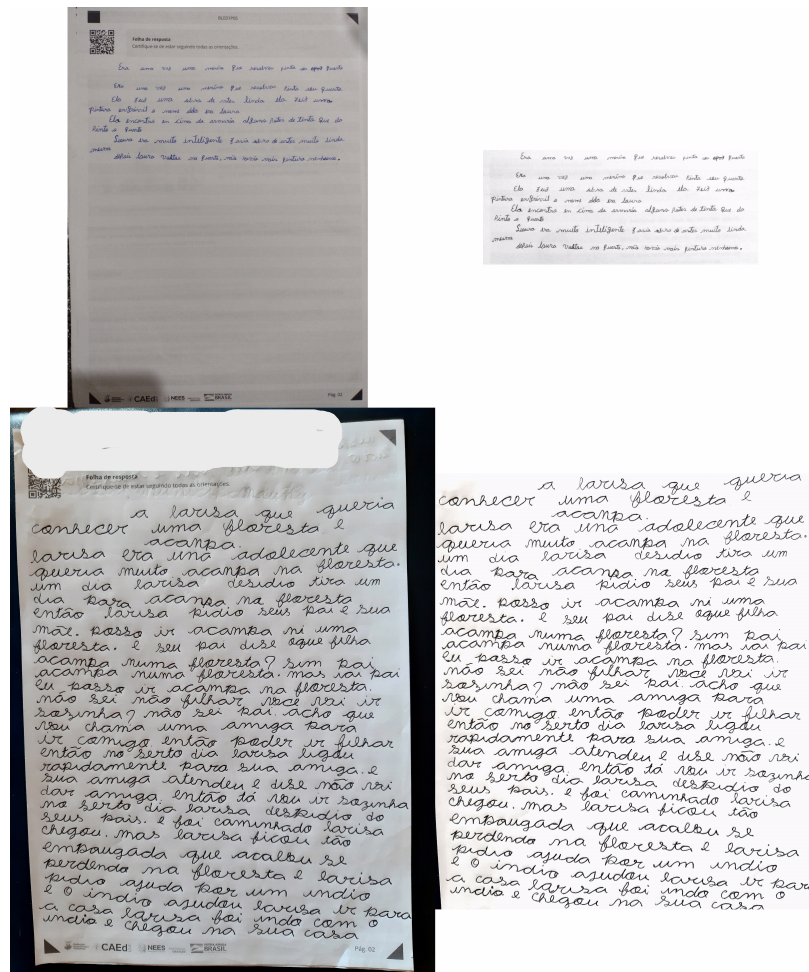 Folha de resposta
Certifique-se de estar seguindo todas as orientações.
Era uma vez uma menina que resolveu pinta seu quarto
Era uma vez um menino que resolveu tinta seu quarto
Ela fez uma obra de artes linda ela fez uma
pintura o nome dela era laura
Ela encontra em cima do armario alguns potes de tinta que da
tinta o quarto
Laura era muito inteligente fazia obra de artes muito linda
mesmo
depois laura voltou no quarto, não pintura nenhuma.
CAEd NEES BRASIL Pág. 02
Era uma vez uma menina que resolveu pinta seu quarto
Era uma vez um menino que resolveu tinta seu quarto
Ela fez uma obra de artes linda ela fez uma
pintura o nome dela era laura
Ela encontra em cima do armario alguns potes de tinta que da
tinta o quarto
Laura era muito inteligente fazia obra de artes muito linda
mesmo
depois laura voltou no quarto, não pintura nenhuma.
Folha de resposta
Certifique-se de estar seguindo todas as orientações.
a larisa que queria
conhecer uma floresta e
acanpa.
larisa era una adolecente que
queria muito acanpa na floresta.
um dia larisa desidio tira um
dia para acanpa na floresta
então larisa pidio seus pai e sua
mãe. posso ir acampa ni uma
floresta. e seu pai dise oque filha
acampa numa floresta? sim pai
acampa numa floresta. mas vai pai
eu passo ir acampa na floresta.
não sei não filhar você vai ir
sosinha? não sei pai. acho que
vou chama uma amiga para
ir comigo então poder ir filhar
então no serto dia larisa ligou
rapidamente para sua amiga. e
sua amiga atendeu e dise não vai
dar amiga. então tá vou ir sozinha
no serto dia larisa despidio do
seus pais. e foi caminhado larisa
chegou. mas larisa ficou tão
empaugada que acabou se
perdendo na floresta e larisa
pidio ajuda por um indio
e o indio ajudou larisa ir para
a casa larisa foi indo com o
indio e chegou na sua casa
CAEd NEES BRASIL Pág. 02
a larisa que queria
conhecer uma floresta e
acanpa.
larisa era una adolecente que
queria muito acanpa na floresta.
um dia larisa desidio tira um
dia para acanpa na floresta
então larisa pidio seus pai e sua
mãe. posso ir acampa ni uma
floresta. e seu pai dise oque filha
acampa numa floresta? sim pai
acampa numa floresta. mas vai pai
eu passo ir acampa na floresta.
não sei não filhar você vai ir
sosinha? não sei pai. acho que
vou chama uma amiga para
ir comigo então poder ir filhar
então no serto dia larisa ligou
rapidamente para sua amiga. e
sua amiga atendeu e dise não vai
dar amiga. então tá vou ir sozinha
no serto dia larisa despidio do
seus pais. e foi caminhado larisa
chegou. mas larisa ficou tão
empaugada que acabou se
perdendo na floresta e larisa
pidio ajuda por um indio
e o indio ajudou larisa ir para
a casa larisa foi indo com o
indio e chegou na sua casa